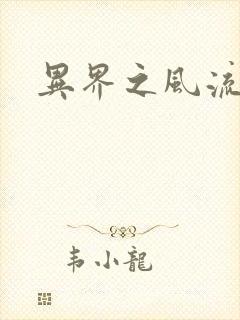 異界之風流
韦小龍